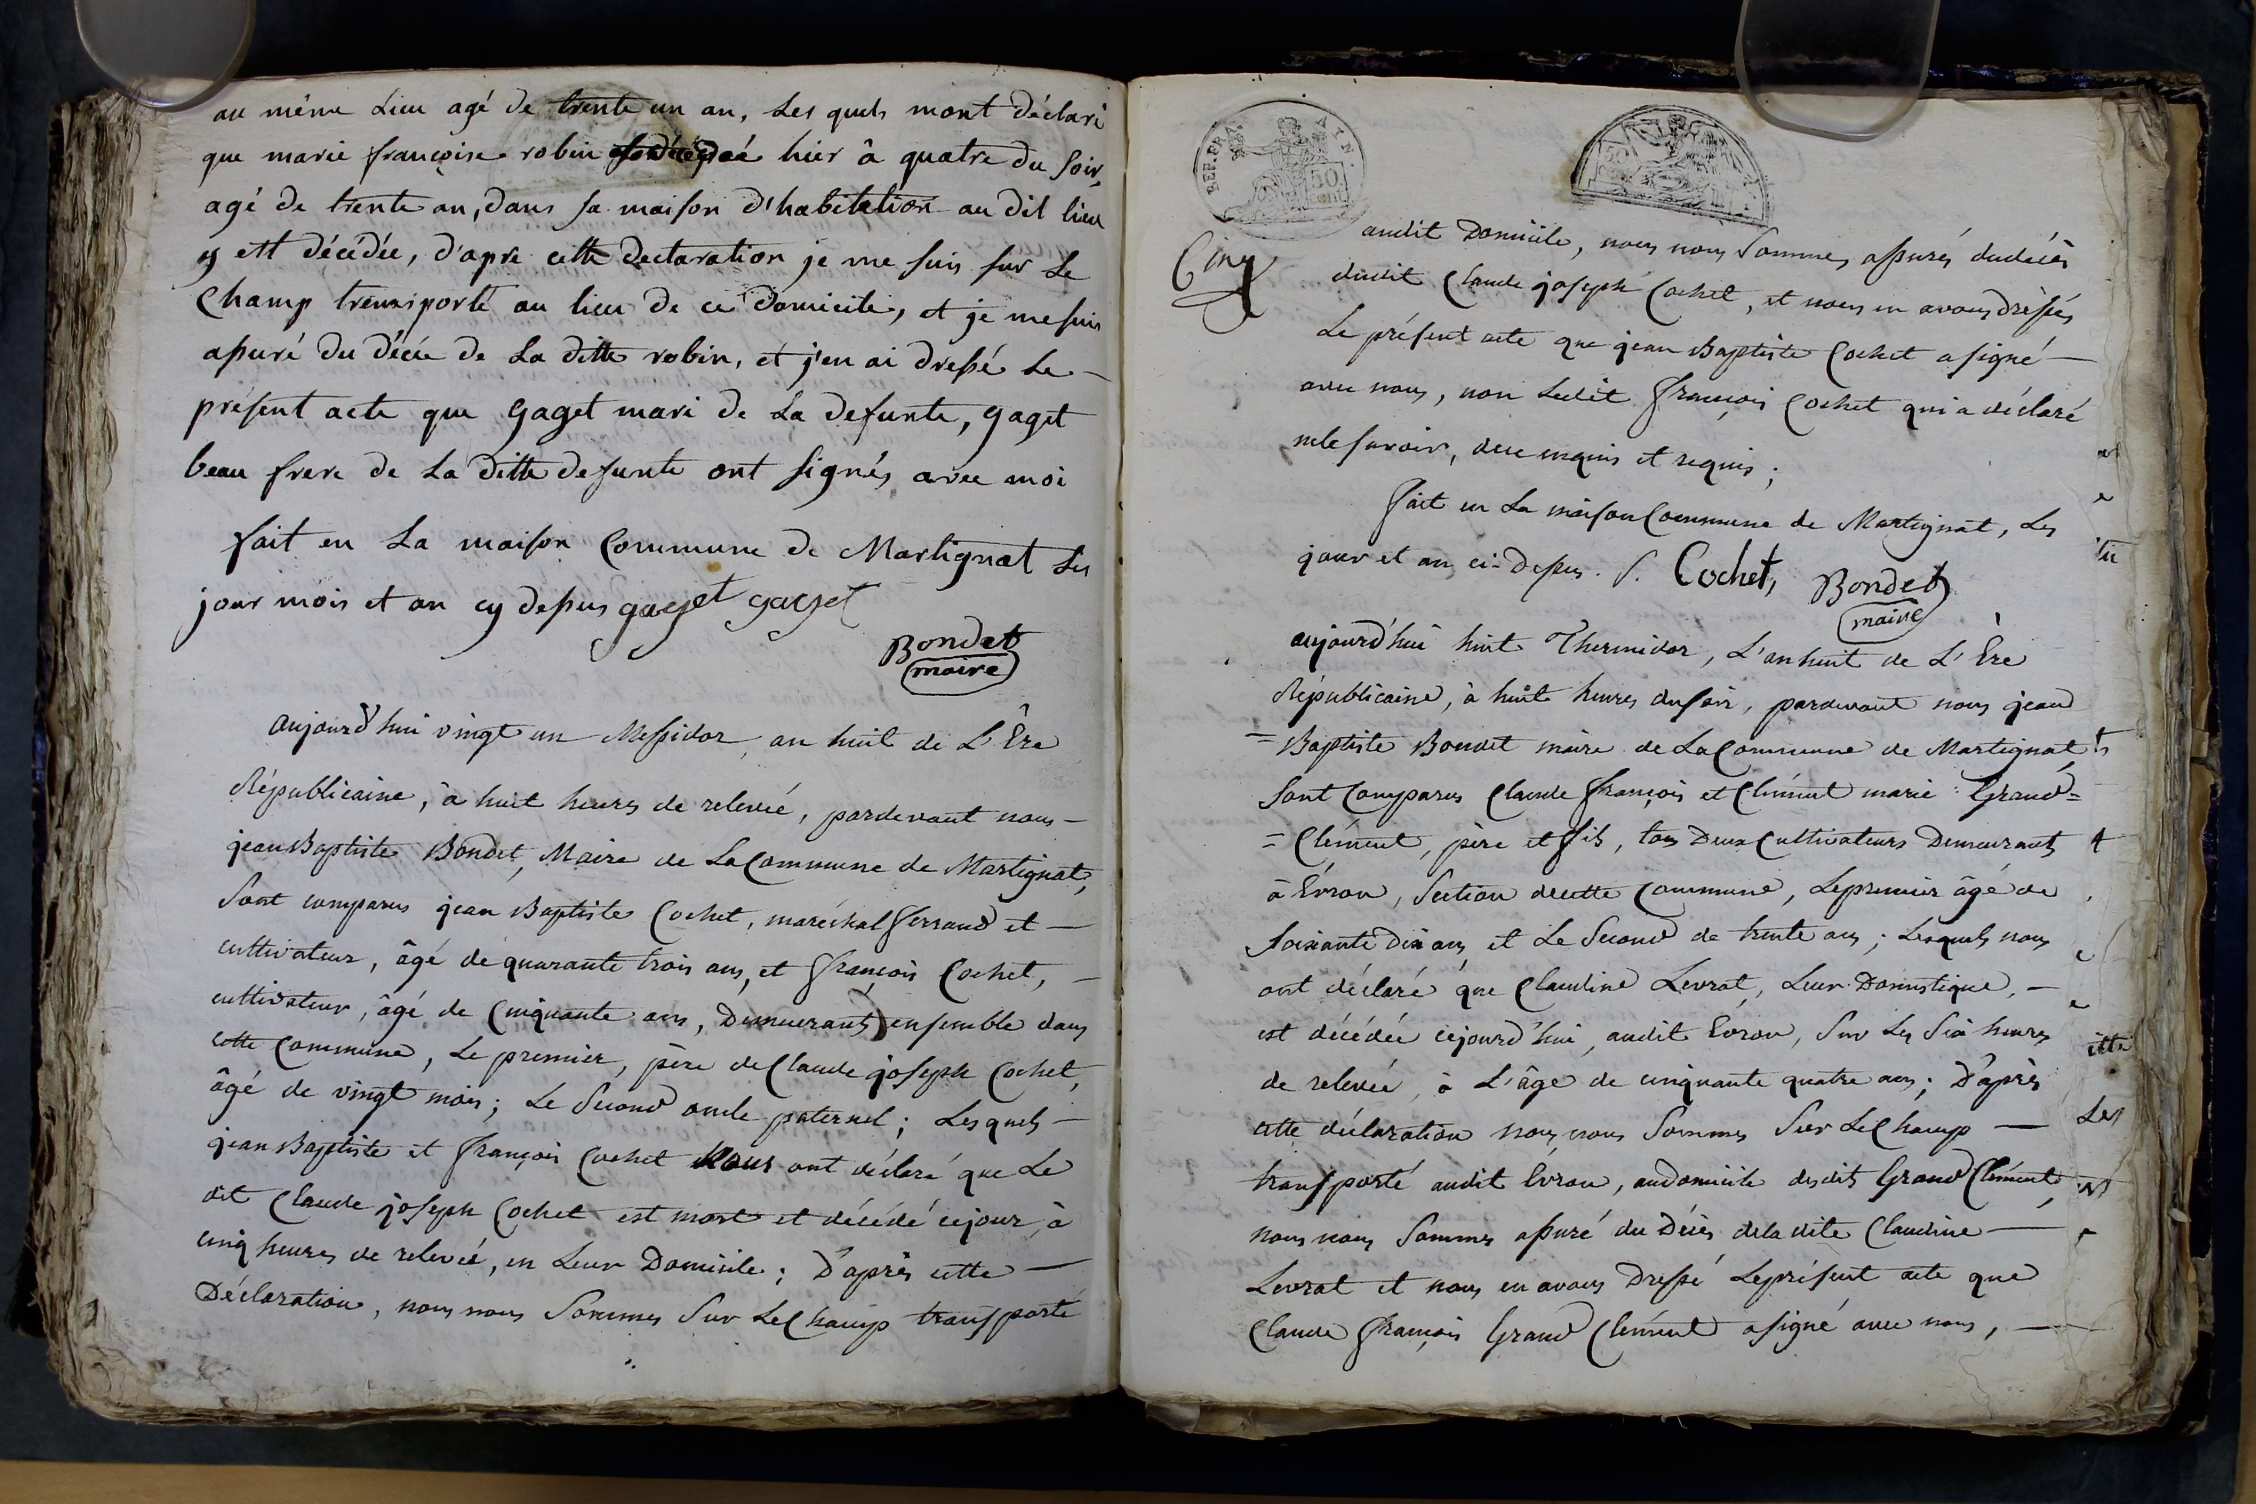 au même Lieu agé de trente un an, Les quels mont déclaré
que marie françoise robin hier â quatre du soir,
agé de trente an, dans sa maison d'habitation au dit lieu
y ett décédée, d'apre cette declaration je me suis sur Le
Champ trensporté au lieu de ce domicile, et je me suis
assuré du décée de La ditte robin, et j'en ai dressé Le -
présent acte que gaget mari de La defunte, gaget
beau frere de La ditte defunte ont signés avec moi
fait en La maison Commune de Martignat Les
jour mois et an cy dessus gaget gaget
Bondet
maire
aujourd'hui vingt un Messidor, an huit de L'Ère
Républicaine, à huit heures de relevée, pardevant nous -
jean Baptiste Bondet, Maire de La Commune de Martignat,
Sont comparus jean Baptiste Cochet, maréchal ferrand et -
cultivateur, âgé de quarante trois ans, et françois Cochet, -
cultivateur, âgé de Cinquante ans, Demeurants ensemble dans
cette Commune, Le premier, père de Claude joseph Cochet,
âgé de vingt mois ; Le Second oncle paternel ; Lesquels -
jean Baptiste et françois Cochet Nous ont déclaré que Le
dit Claude joseph Cochet est mort et décédé cejour, à
cinq heures de relevée, en Leur Domicile ; D'après cette -
Déclaration, nous nous Sommes Sur Le Champ transporté
REP. FRA. AYN.
50 cent
50
Cinq
audit Domicile, nous nous Sommes assurés dudécès
dudit Claude joseph Cochet, et nous en avons dressés
Le présent acte que jean Baptiste Cochet a signé -
avec nous, non Ledit françois Cochet qui a déclaré
nele savoir, de ce enquis et requis ;
fait en La maison Commune de Martignat, Les
jour et an ci-dessus. J. Cochet, Bondet
maire
aujourd'hui huit Thermidor, L'an huit de L'Ère
Républicaine, à huit heures du soir, pardevant nous jean
= Baptiste Bondet maire de La Commune de Martignat
Sont Comparus Claude françois et Clément marie Grand =
= Clément, père et fils, tous Deux Cultivateurs Demeurants
à Évron, Section decette Commune, Lepremier âgé de
Soixante dix ans et Le Second de trente ans ; Lesquels nous
ont déclaré que Claudine Levrat, Leur Domestique, -
est décédée cejourd'hui, audit Évron, Sur Les Six heures
de relevée, à L'âge de cinquante quatre ans ; D'après
cette déclaration nous nous Sommes Sur Le Champ -
transporté audit Évron, audomicile desdits Grand Clément,
nous nous Sommes assuré du Décès dela dite Claudine -
Levrat et nous en avons Dressé Leprésent acte que
Claude françois Grand Clément a signé avec nous, -